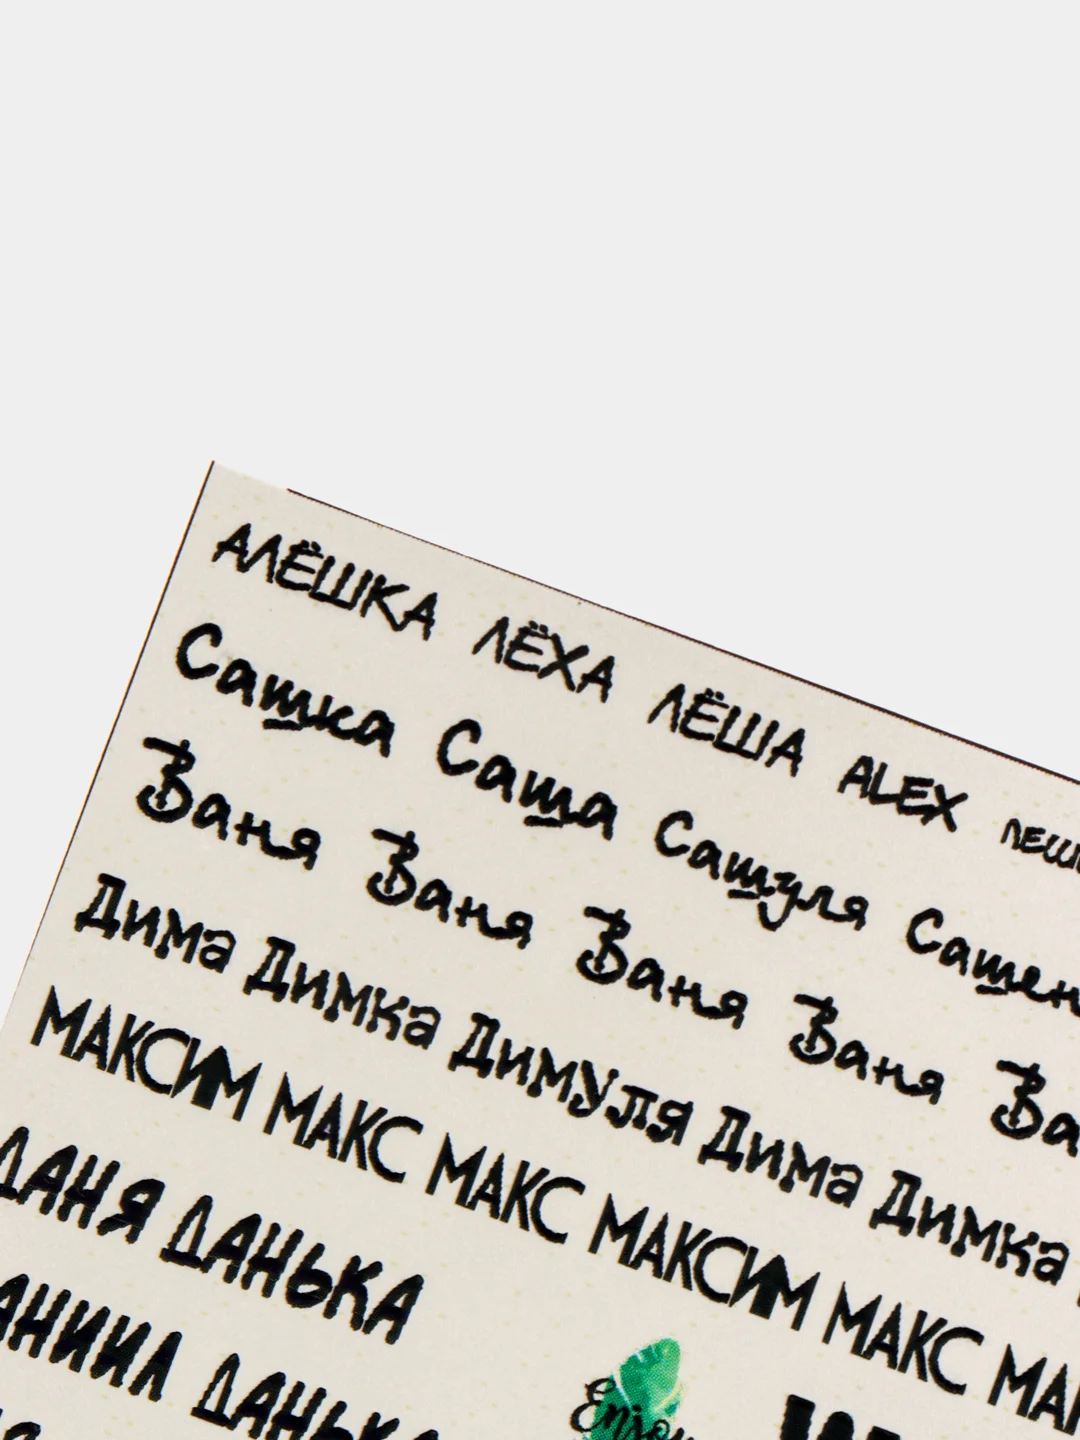 АЛЁШКА ЛЁХА ЛЁША ALEX
Сашка Саша Сашуля
Ваня Ваня Ваня Ваня
Дима Димка Димуля Дима Димка
МАКСИМ МАКС МАКС МАКСИМ МАКС
ДАНЯ ДАНЬКА
ДАНЬКА
Enjoy